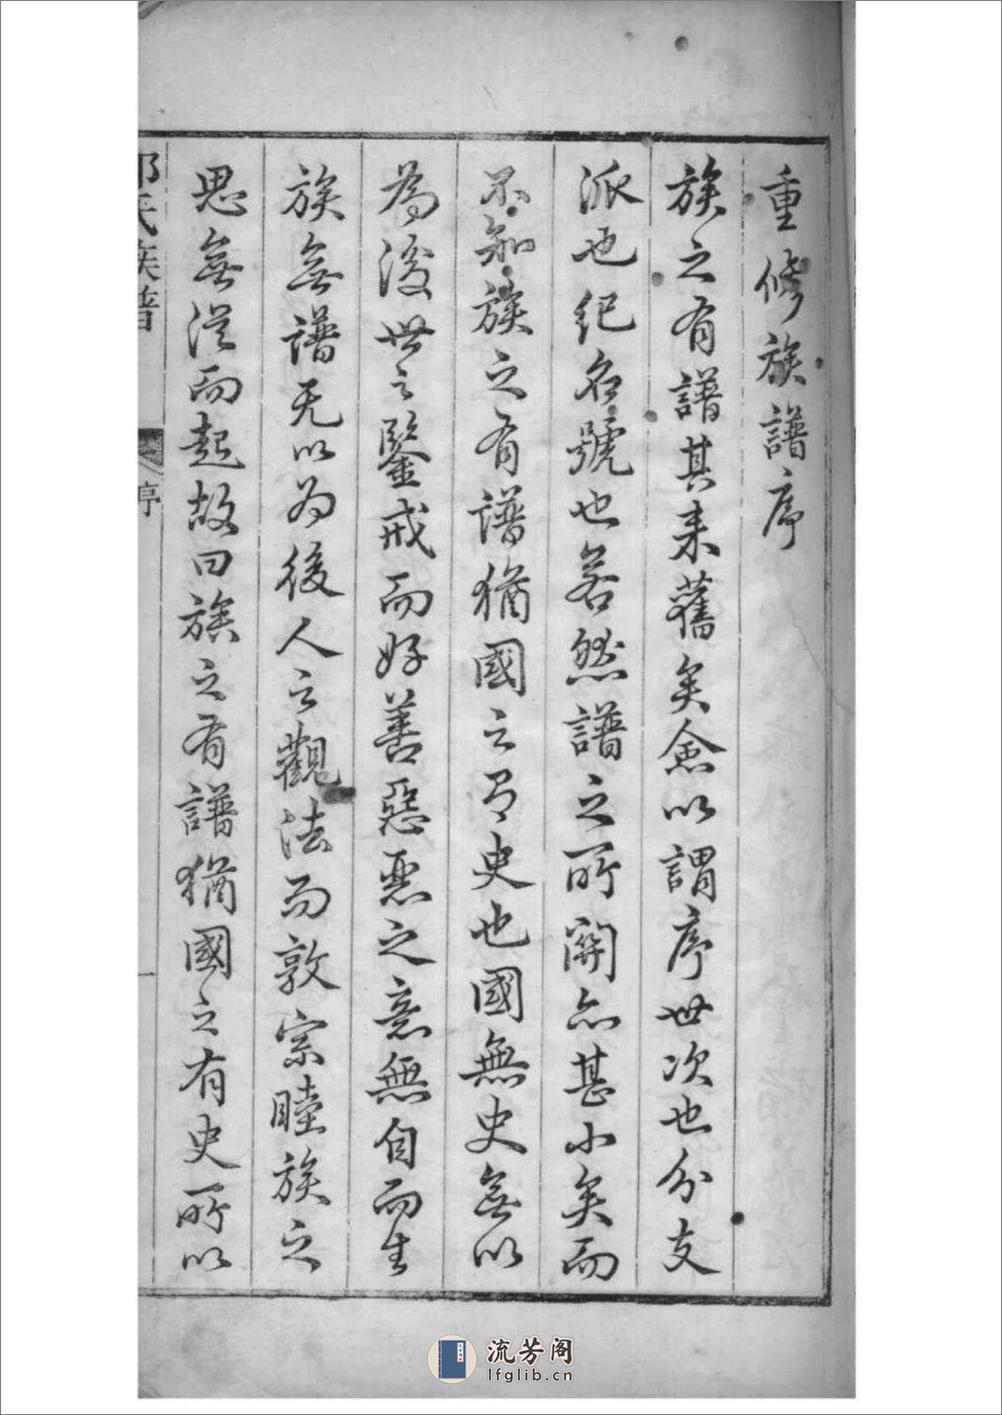 重修族譜序
族之有譜其来舊矣僉以謂序世次也分支
派也紀名號也若然譜之所關亦甚小矣而
不知族之有譜猶國之有史也國無史無以
為後世之鑒戒而好善惡惡之意無自而生
族無譜无以為後人之觀法而敦宗睦族之
思無從而起故曰族之有譜猶國之有史所以
氏族譜
序
一
流芳阁
lfglib.cn